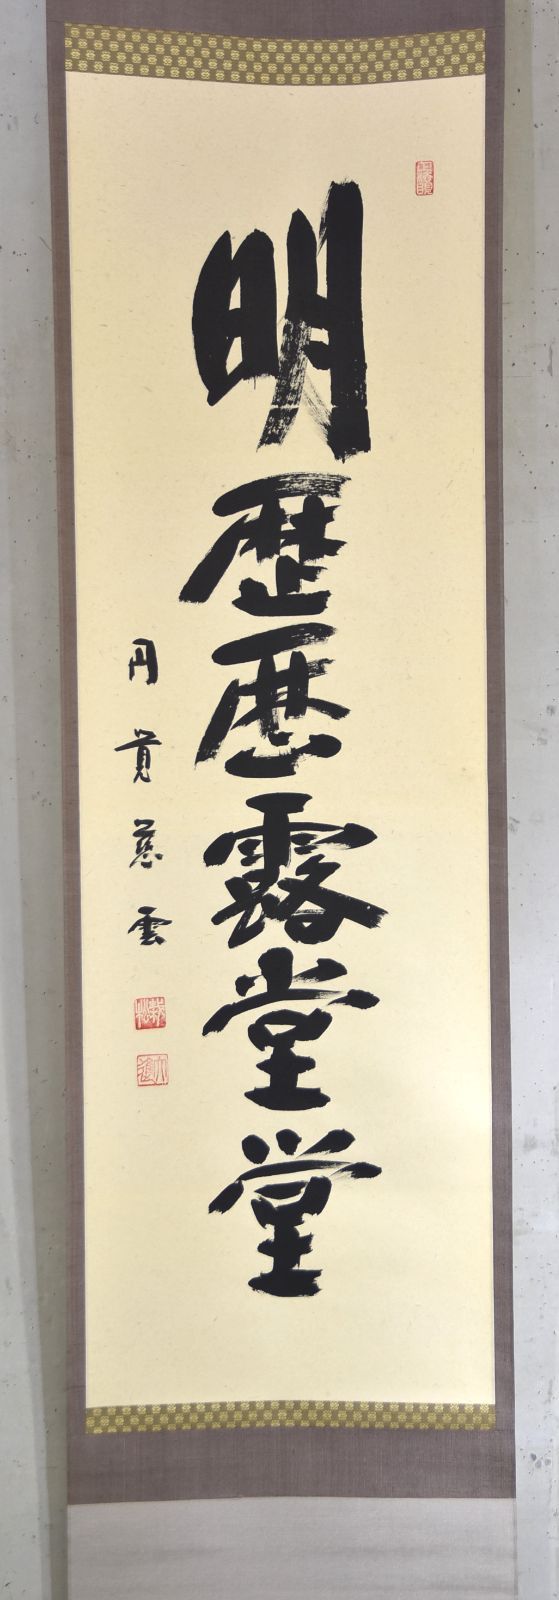 明歴歴露堂堂
円覚慈雲